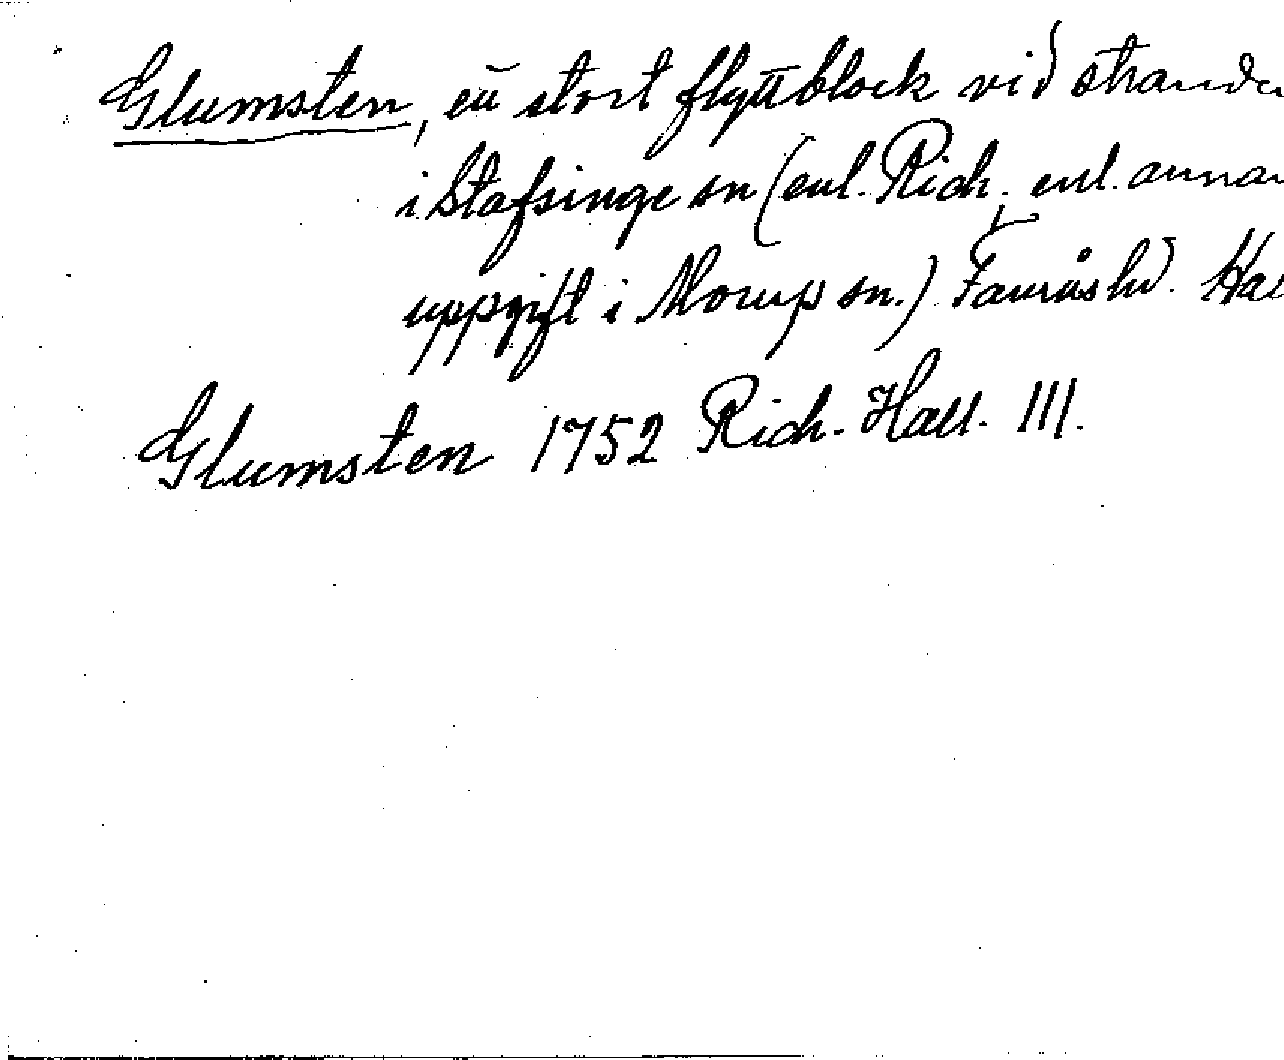 Glumsten, ett stort flyttblock vid strande
i Stafsinge sn (enl. Rich. enl. annan
uppgift i Morup sn.) Faurås hd. Hal
Glumsten 1752 Rich. Hall. III.